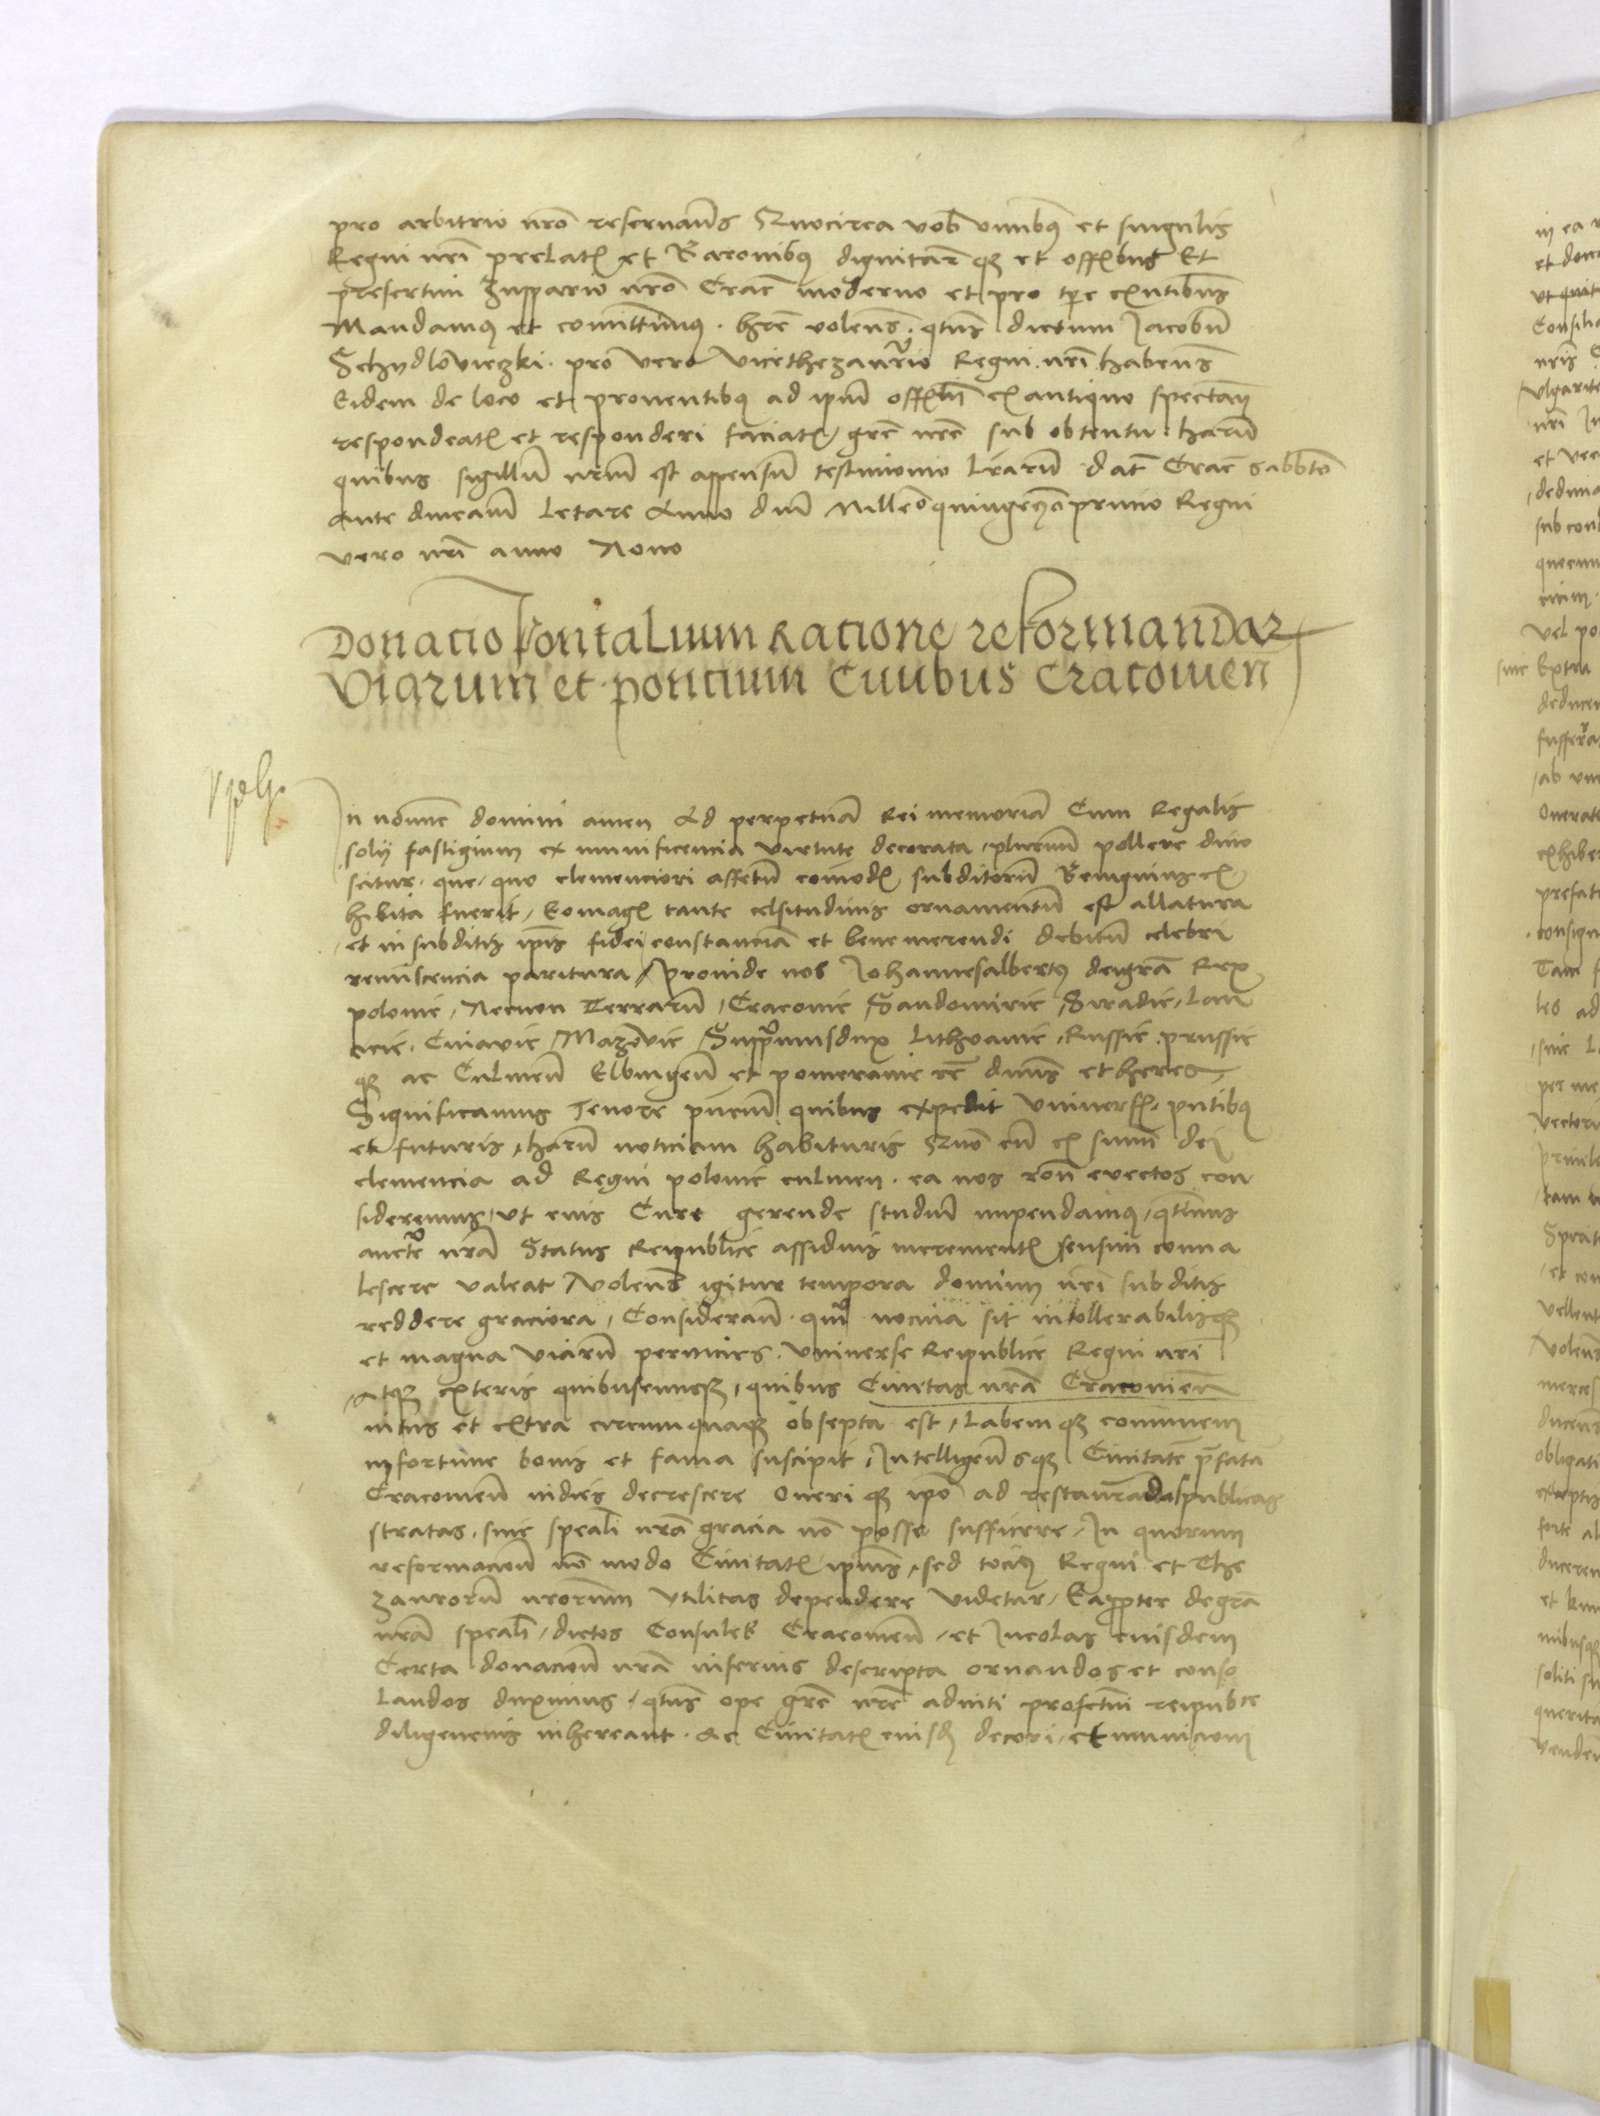 pro arbitrio nrō reseruauīs Quocirca vob vniūbꝰ et singulis
Regni nrī prelatꝭ et Baronibꝰ dignitar̄ qꝫ et offꝭbus Et
presertim Zuppario nrō Crac̄ moderno et pro tp̄e exn̄tibus
Mandamꝰ et comittimꝰ . hr̄e volens̄ . qtus̄ dictum Jacobū
Schydlovieczki . pro vero vicethezaurͦio Regni nrī habens̄
Eidem de loco et prouentibꝰ ad ipm̄ offꝭm̄ ex antiquo spectan̄
respondeatꝭ et responderi faciatꝭ / grē nrē sub obtentu . harū
quibus sigillū nrm̄ est appensū testimonio lrarū dat̄ Crac̄ sabbto
ante dnicam̄ Letare Anno dnī Millēo quingenͦo primo Regni
vero nrī anno Nono
Donacio Pontalium Racione reformandar
Viarum et poncium Ciuibus Cracouien
In noīne domini amen Ad perpetuā Rei memoriā Cum Regalis
solij fastigium ex munificencia virtute decorata / plurimū pollere dino
scitur . que . quo clemenciori affetū comodꝭ subditorū Benignius ex
hibita fuerit / Eomagꝭ tante celsitudinis ornamentū est allatura
et in subditis ipīs fidei constanciā et bene merendi debitū celebri
reminiscencia paritura / Prouide nos Johannesalbertꝰ dei grā Rex
polonie / Necnon Terrarū / Cracouie / Sandomirie / Siradie / Lan
cicie . Cuiavie / Mazovie / Supprͦmusdux Lithvanie / Russie prussie
qꝫ ac Culmen̄ Elbingen̄ et pomeranie rē dnus̄ et heres /
Significamus Tenore pn̄cm̄ quibus expedit vniuersꝭ . pn̄tibꝰ
et futuris / harū noticiam habituris Quō cū ex sum̄i dei
clemencia ad Regni polonie culmen . ea nos ron̄ evectos con
sideremus / vt eius Cure gerende studiū impendamꝰ / qtinus
auctͦe nrā Status Reipublice assiduis incrementꝭ sensim conua
lescere valeat / Volens̄ igitur tempora domini nrī subditis
reddere graciora / Consideran̄ . qm̄ nociua sit intollerabilisqꝫ
et magna viarū pernicies . Vniuerse Reipublice Regni nrī
Atqꝫ exteris quibuscunqꝫ / quibus Ciuitas nrā Cracouien̄
intus et extra circumquaqꝫ obsepta est / Labemqꝫ comunem
in fortune bonis et fama suscipit / Intelligen̄sqꝫ Ciuitatē prefatā
Cracouien̄ indies decrescere Oneri qꝫ ipō ad restaurādas publicas
stratas / sine speali nrā gracia nō posse sufficere / In quorum
reformacion̄ nō modo Ciuitatꝭ ipius̄ / sed tociꝰ Regni et The
zaurorū nrorum vtilitas dependere videtur / Eapropter de grā
nrā speali / dictos Consules Cracouien̄ / et Incolas eiusdem
Certa donacion̄ nrā inferius descripta ornandos et conso
landos duximus / qtus̄ ope grē nrē aduiti profectui reipubce
diligencius inhereant . Ac Ciuitatꝭ eiusd decori / et municioni